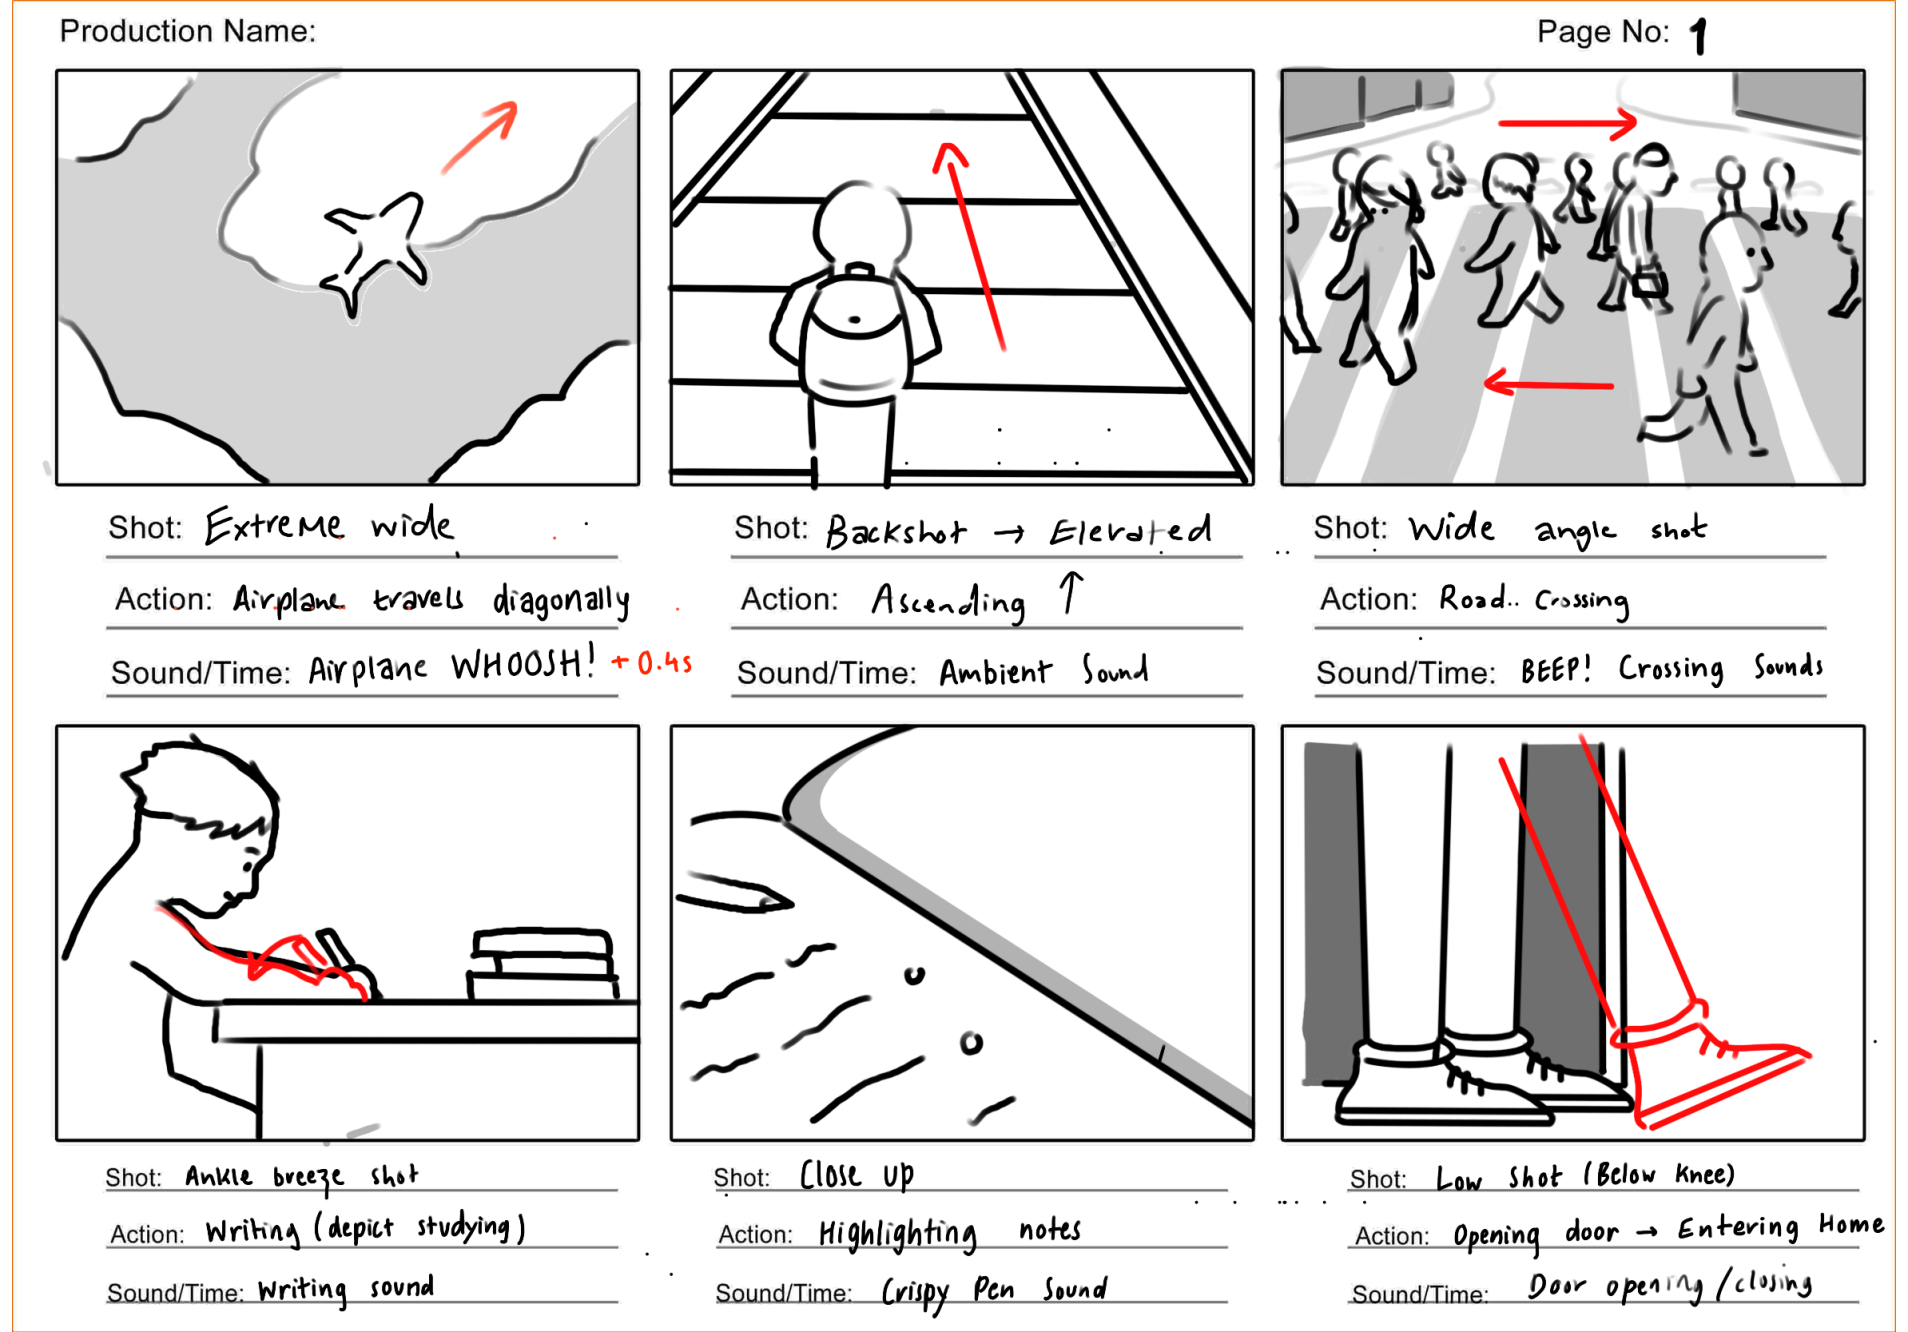 Production Name:
Page No: 1
Shot: Extreme wide
Action: Airplane travels diagonally
Sound/Time: Airplane WHOOSH! + 0.4s
Shot: Backshot → Elevated
Action: Ascending ↑
Sound/Time: Ambient Sound
Shot: Wide angle shot
Action: Road.. Crossing
Sound/Time: BEEP! Crossing Sounds
Shot: Ankle breeze shot
Action: Writing (depict studying)
Sound/Time: Writing sound
Shot: Close up
Action: Highlighting notes
Sound/Time: Crispy Pen Sound
Shot: Low Shot (Below Knee)
Action: Opening door → Entering Home
Sound/Time: Door opening/closing